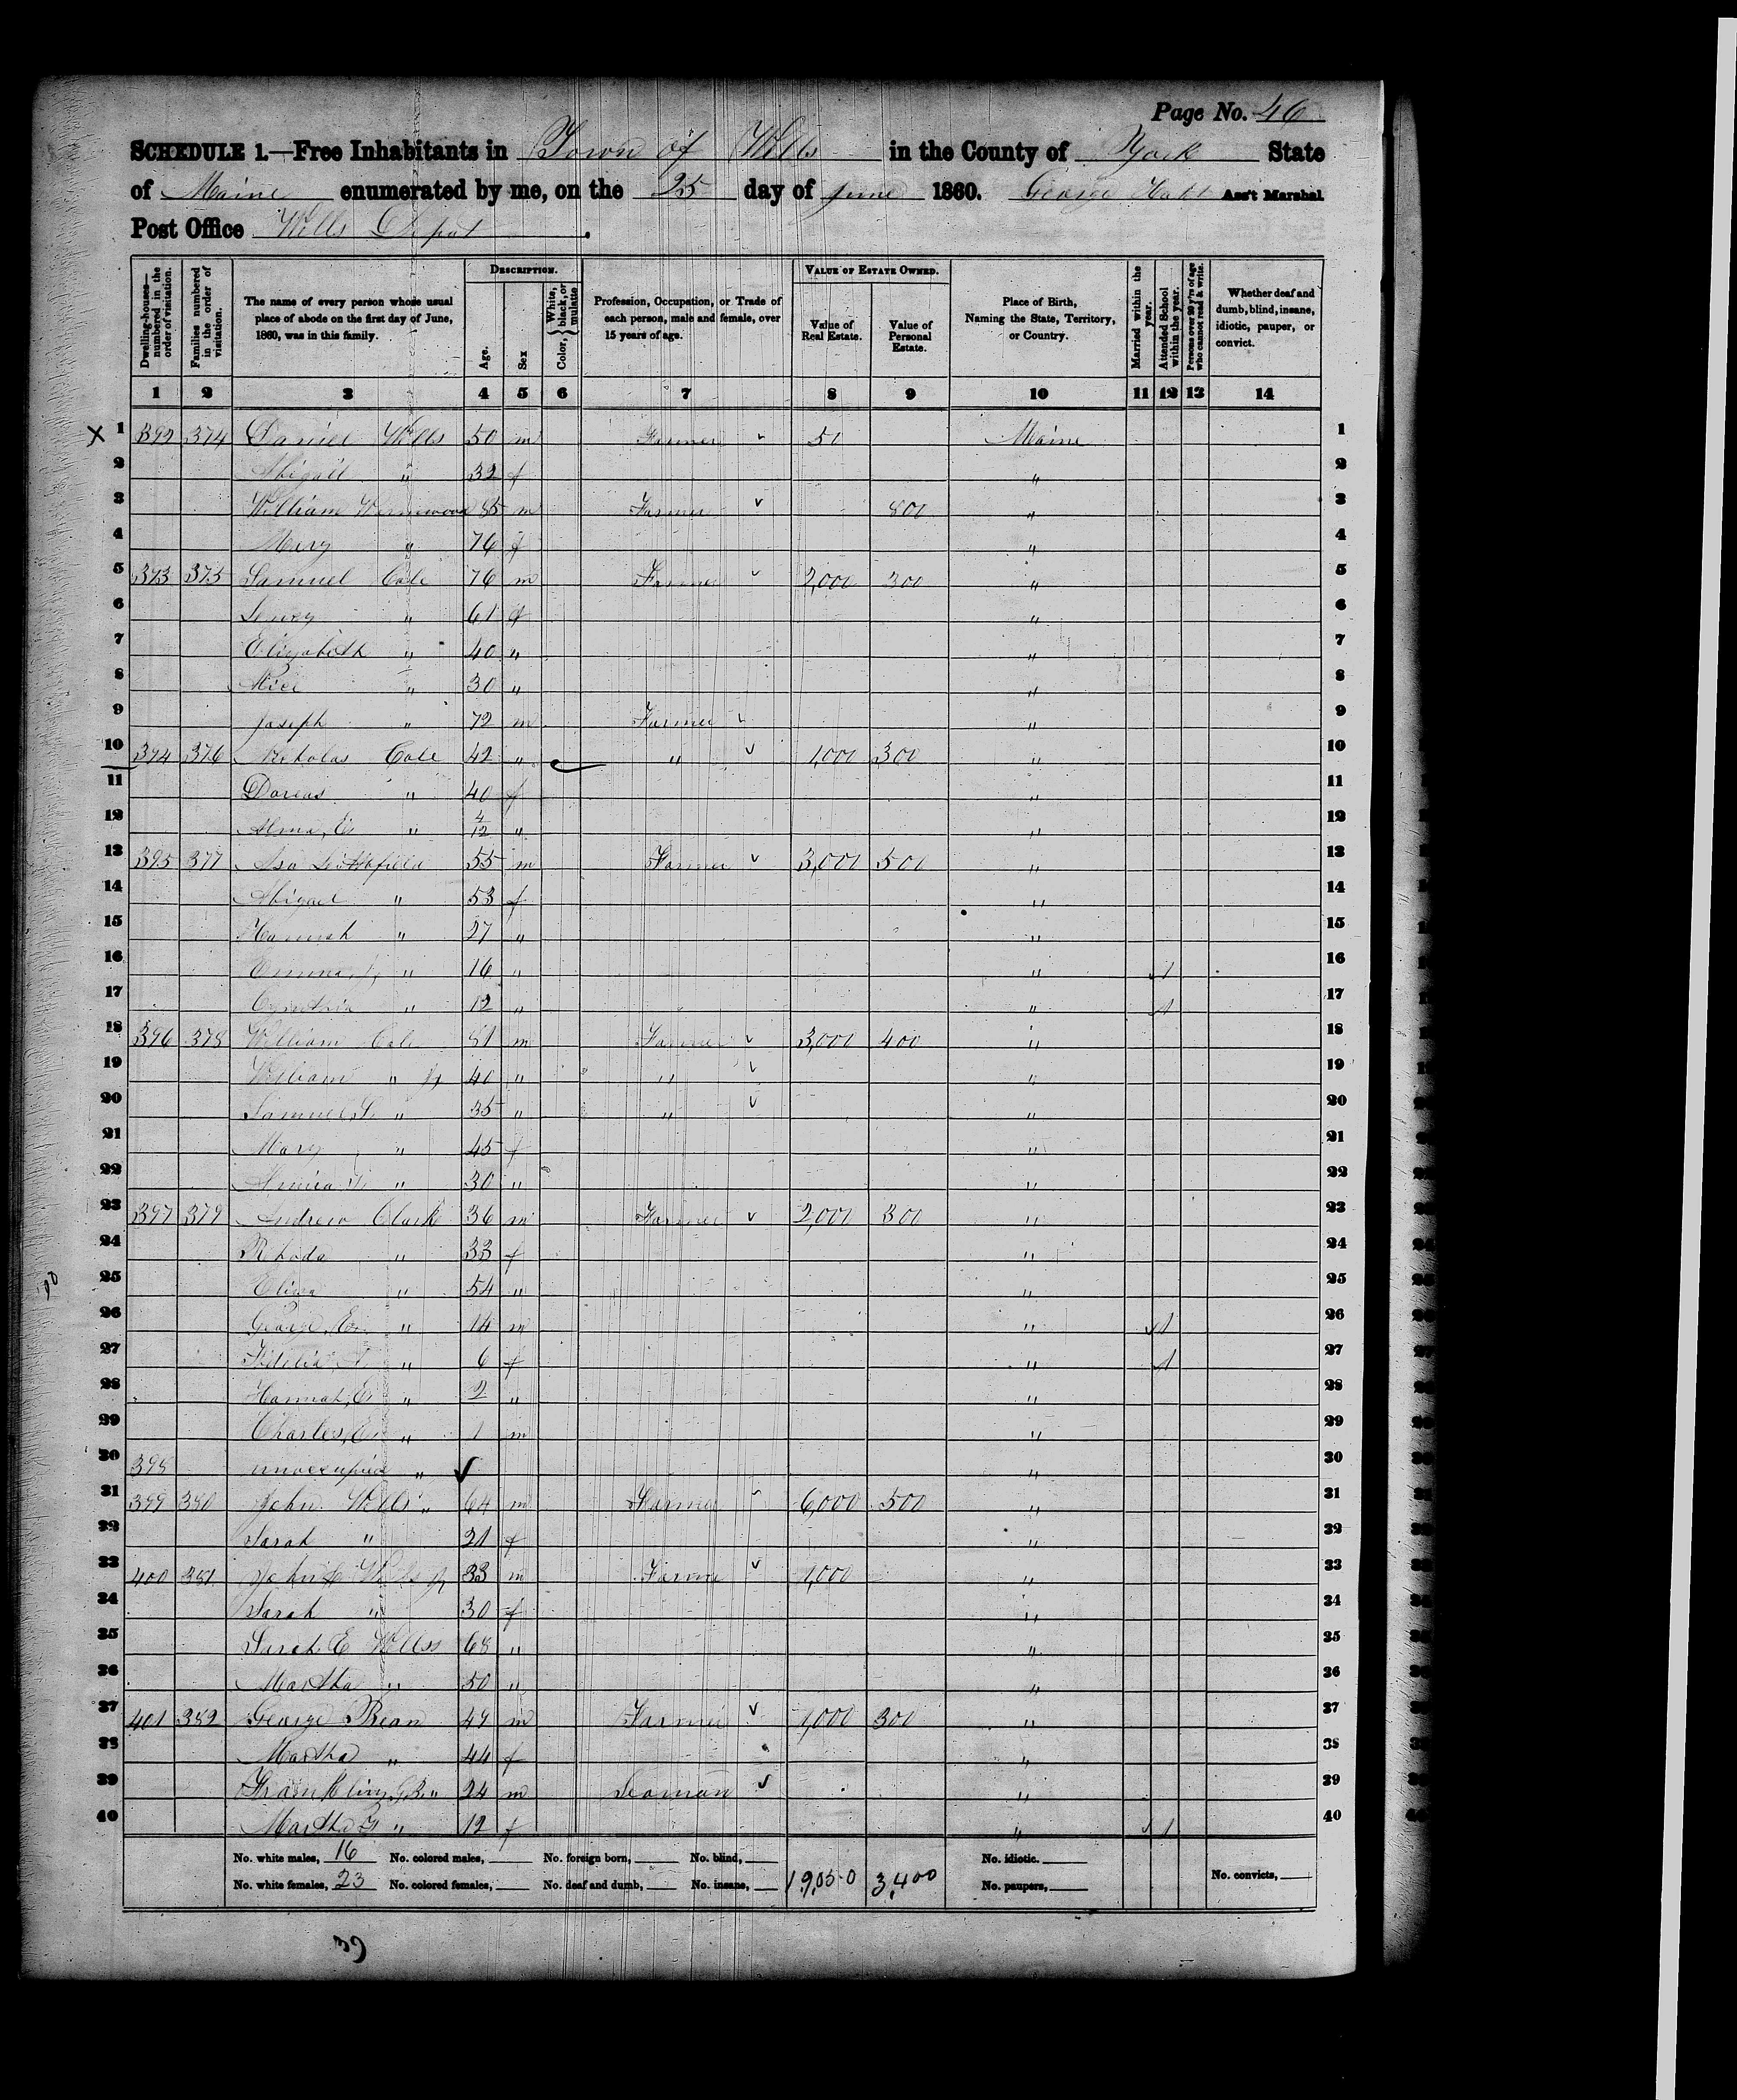 Page No. 46
SCHEDULE 1.—Free Inhabitants in Town of Wells in the County of York State
of Maine enumerated by me, on the 25 day of June 1860. George Ass't Marshal
Post Office Wells Depot.
Dwelling-houses—numbered in the order of visitation.
Families numbered in the order of visitation.
The name of every person whose usual place of abode on the first day of June, 1860, was in this family.
DESCRIPTION.
Age.
Sex
Color, White, black, or mulatto
Profession, Occupation, or Trade of each person, male and female, over 15 years of age.
VALUE OF ESTATE OWNED.
Value of Real Estate.
Value of Personal Estate.
Place of Birth, Naming the State, Territory, or Country.
Married within the year.
Attended School within the year.
Persons over 20 y'rs of age who cannot read & write.
Whether deaf and dumb, blind, insane, idiotic, pauper, or convict.
1 2 3 4 5 6 7 8 9 10 11 12 13 14
X 1 392 374 Daniel Wells 50 m Farmer 50 Maine 1
2 Abigail " 32 f " 2
3 William 85 m Farmer 800 " 3
4 Mary " 76 f " 4
5 393 375 Samuel Cole 76 m Farmer 2,000 300 " 5
6 " 61 f " 6
7 Elizabeth " 40 " " 7
8 " 30 " " 8
9 Joseph " 72 m Farmer " 9
10 394 376 Nicholas Cole 42 " " 1,000 300 " 10
11 Dorcas " 40 f " 11
12 Alma, E " 4/12 " " 12
13 395 377 Asa Littlefield 55 m Farmer 3,000 500 " 13
14 Abigail " 53 f " 14
15 Hannah " 27 " " 15
16 Emma " 16 " " 1 16
17 Cynthia " 12 " " 1 17
18 396 378 William Cole 81 m Farmer 3,000 400 " 18
19 William " Jr 40 " " " 19
20 Samuel S. " 35 " " " 20
21 Mary " 45 f " 21
22 " 30 " " 22
23 397 379 Andrew Clark 36 m Farmer 2,000 300 " 23
24 Rhoda " 33 f " 24
25 " 54 " " 25
26 George " 14 m " 1 26
27 Fidelia " 6 f " 1 27
28 Hannah, E " 2 " " 28
29 Charles, E " 1 m " 29
30 398 unoccupied " " 30
31 399 380 John Wells " 64 m Farmer 6,000 500 " 31
32 Sarah " 21 f " 32
33 400 381 John Wells Jr 33 m Farmer 1,000 " 33
34 Sarah " 30 f " 34
35 Sarah E Wells 68 " " 35
36 Martha " 50 " " 36
37 401 382 George Bean 47 m Farmer 1,000 300 " 37
38 Martha " 44 f " 38
39 Franklin G.B. " 24 m Seaman " 39
40 Martha " 12 f " 1 40
No. white males, 16 No. colored males, No. foreign born, No. blind, No. idiotic.
No. white females, 23 No. colored females, No. deaf and dumb, No. insane, 19,050 3,400 No. paupers, No. convicts,
39